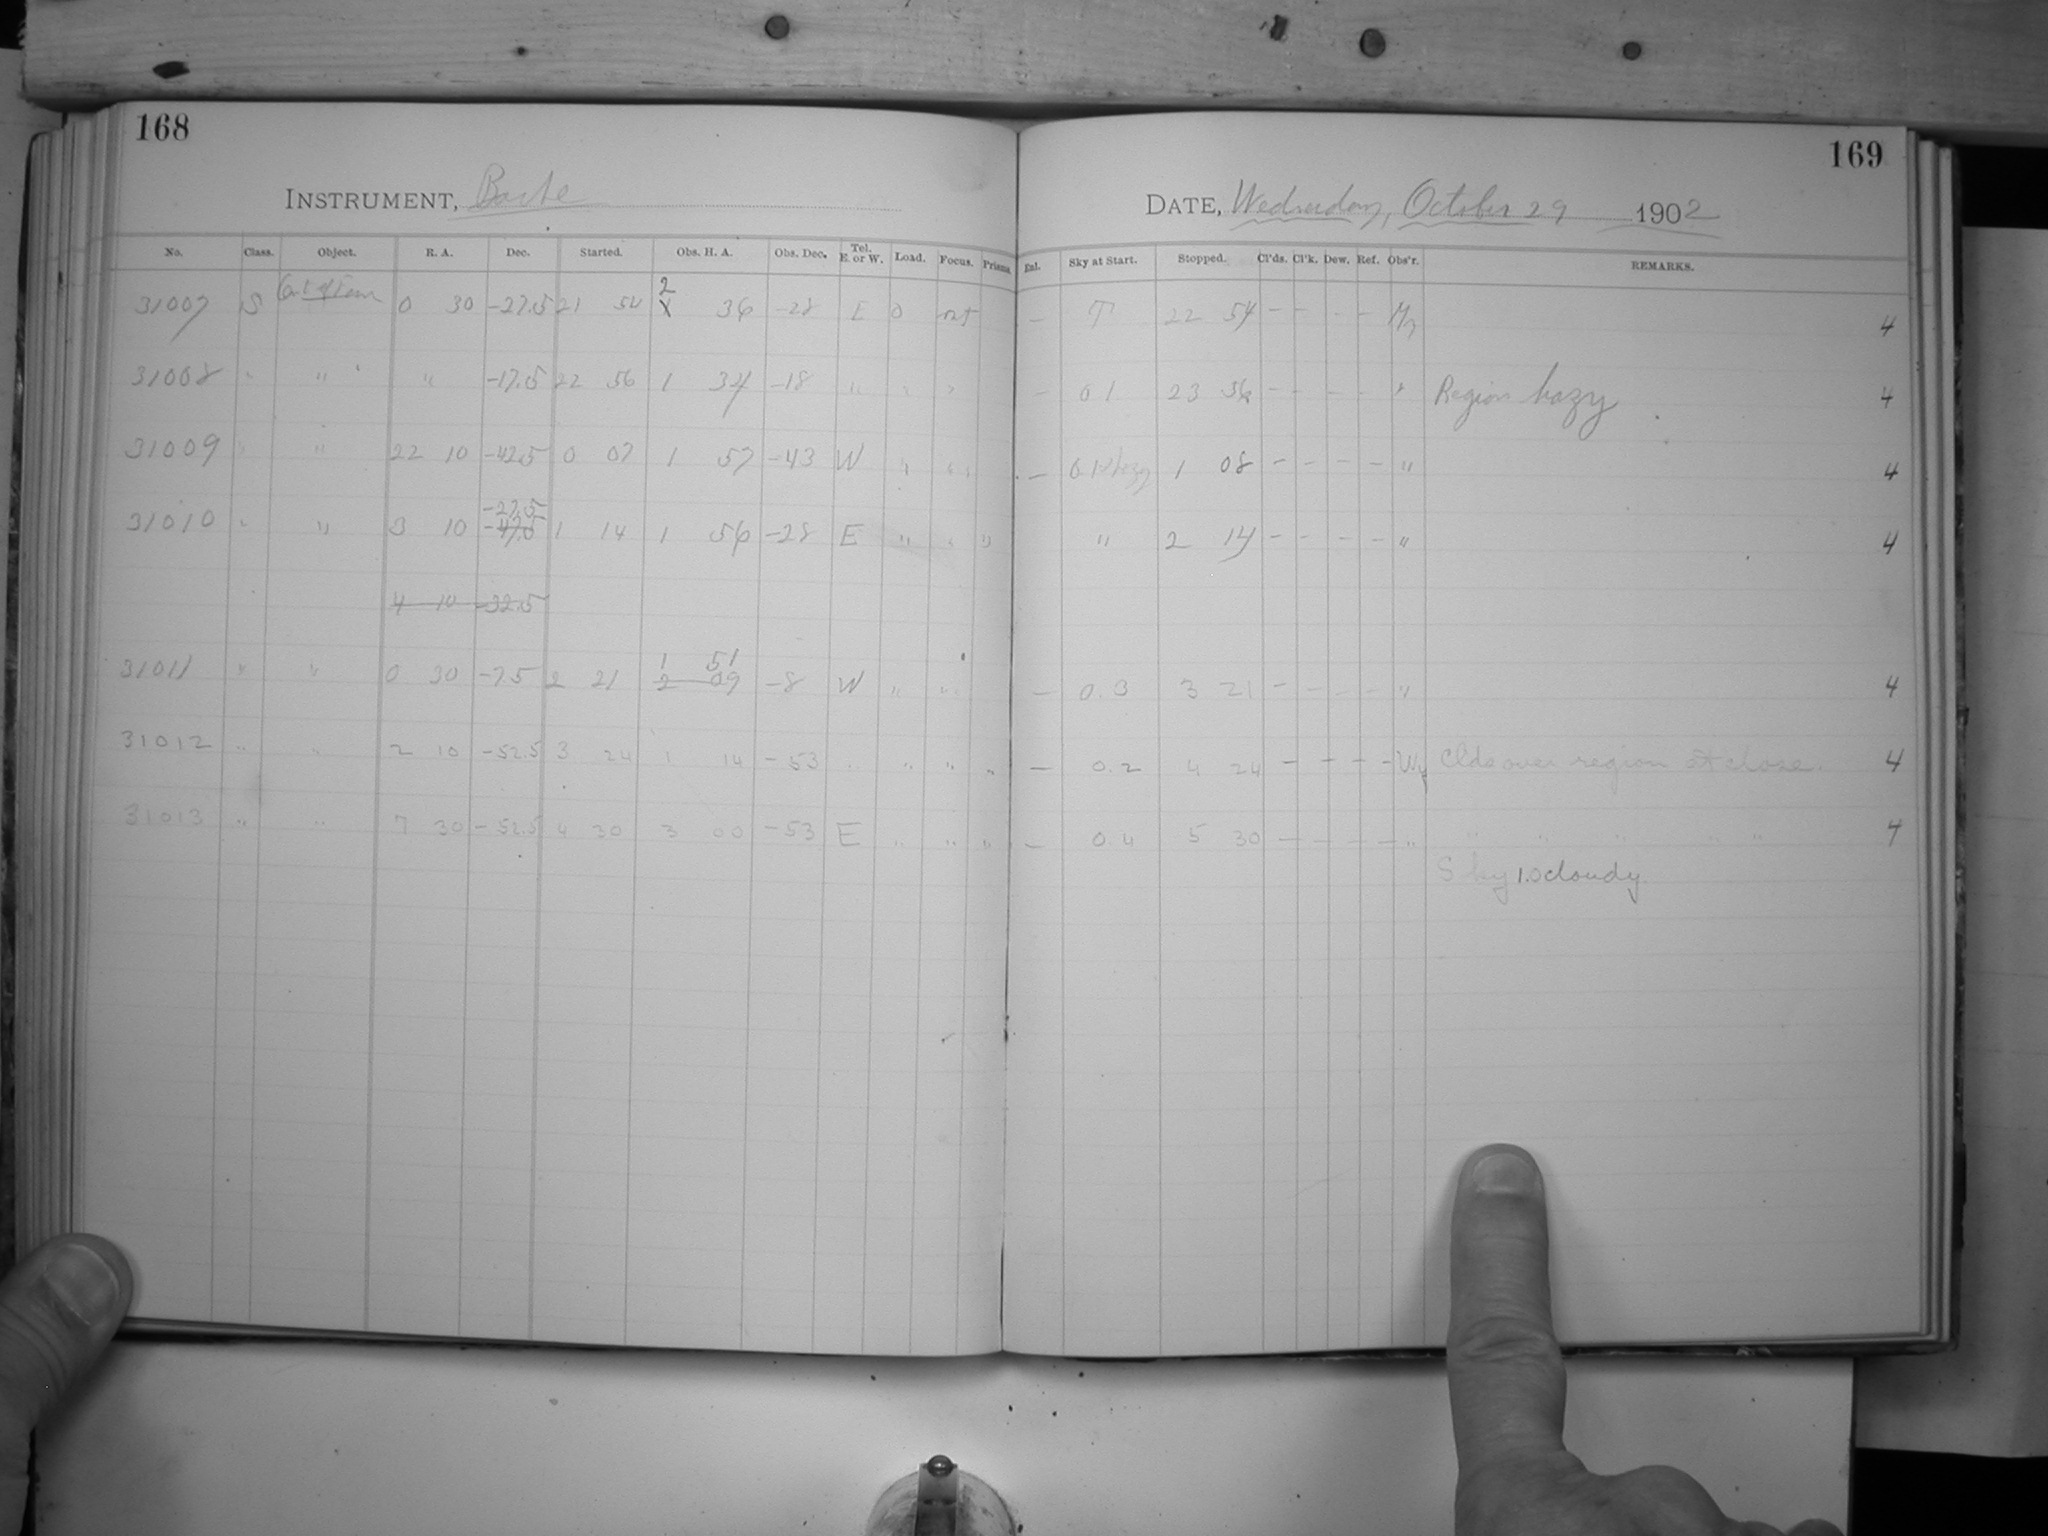 168
INSTRUMENT, Bache
No. Class. Object. R. A. Dec. Started. Obs. H. A. Obs. Dec. Tel. E. or W. Load. Focus. Prisms.
31007 S 0 30 -27.5 21 54 2 36 -28 E 0
31008 " " " -17.5 22 56 1 34 -18 " " "
31009 " " 22 10 -42.5 0 07 1 57 -43 W " "
-27.5
31010 " " 3 10 -47.5 1 14 1 56 -28 E " " "
4 10 -32.5
1 51
31011 " " 0 30 -7.5 2 21 2 09 -8 W " "
31012 " " 2 10 -52.5 3 24 1 14 -53 " " " "
31013 " " 7 30 -52.5 4 30 3 00 -53 E " " "
169
DATE, Wednesday, October 29 1902
Enl. Sky at Start. Stopped. Cl'ds. Cl'k. Dew. Ref. Obs'r. REMARKS.
— 22 54 - - - - 4
— 01 23 56 - - - - " Region hazy 4
— 1 08 - - - - " 4
" 2 14 - - - - " 4
— 0.3 3 21 - - - - " 4
— 0.2 4 24 - - - - Clds over region at close. 4
— 0.4 5 30 - - - - " " " " " " 4
Sky 10 cloudy.